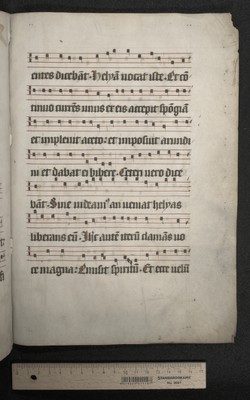 entes dicebāt . Helyā vocat iste . Et cō
tinuo currēs unus ex eis accepit spōgiā
et implevit aceto : et imposuit arundi
ni et dabat ei bibere . Ceteri vero dice
bāt . Sine videamꝰ an veniat helyas
liberans eū . Ihc autē iterū clamās vo
ce magna : Emisit spiritū . Et ecce velū